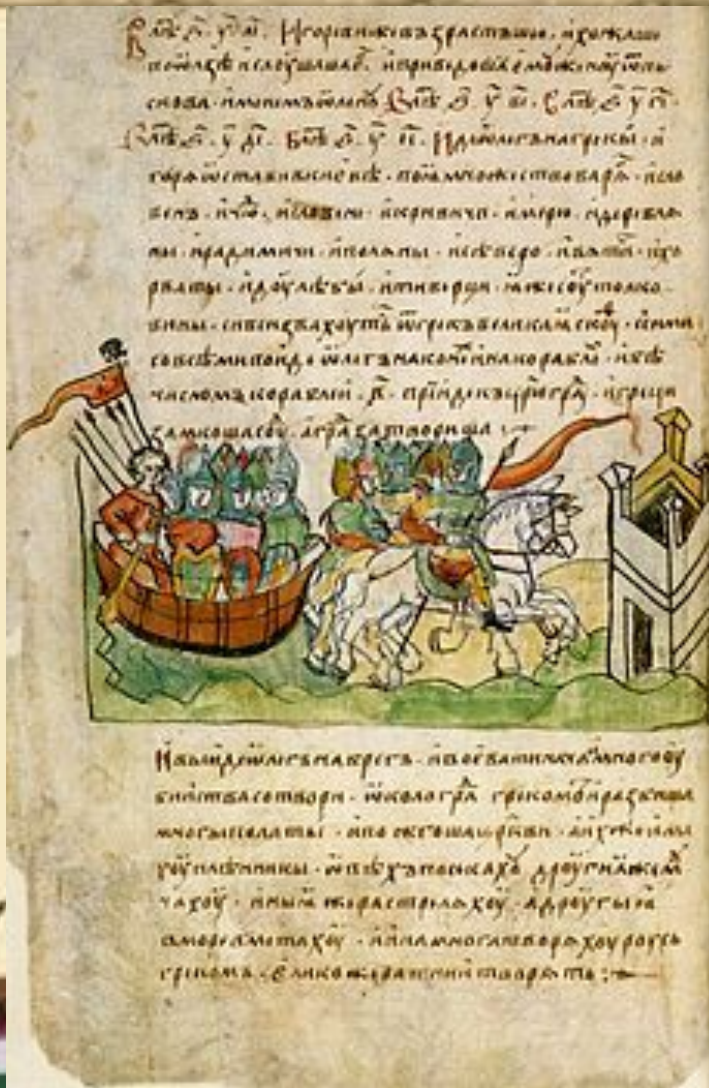 Игореви же възрастъшю. и хожаше
по ѡлзѣ и слоушаше. и приведоша емоу женоу ѿ
скова. именемъ ѡленоу В лѣ ҂ѕ҃. у҃ ві. В лѣ ҂ѕ҃ у҃ гі.
В лѣ ҂ѕ҃. у҃ ді. В лѣ ҂ѕ҃. у҃ еі. Иде ѡлегъ на греки. и
горя ѡставивъ киевѣ. поя множество варя. и сло
венъ. и чю. и словени. и кривичи. и мерю. и деревля
ны. и радимичи. и поляны. и северо. и вятичи. и хо
рваты. и доулѣбы. и тиверци. яже соуть толко
вины. си вси звахоуть ѿ грекъ великая скоуѳ. с ними
со всѣми поиде ѡлегъ на кони и на кораблѣ. и бѣ
числомъ кораблеи. в҃. прииде къ цр҃югра. и греци
замкоша соу. а гра затвориша
И выиде ѡлегъ на брегъ. и воевати нача. и много оу
биства сотвори. ѡколо гра грекомъ. и разбиша
многы полаты. и пожгоша цр҃кви. а их же имя
хоу пленники. ѡвѣхъ посекахоу дроугия же моу
чахоу. иныя же растреляхоу. а дроугыя
в море вметахоу. и ина многа творяхоу роусь
грекомъ. елико же ратнии творять